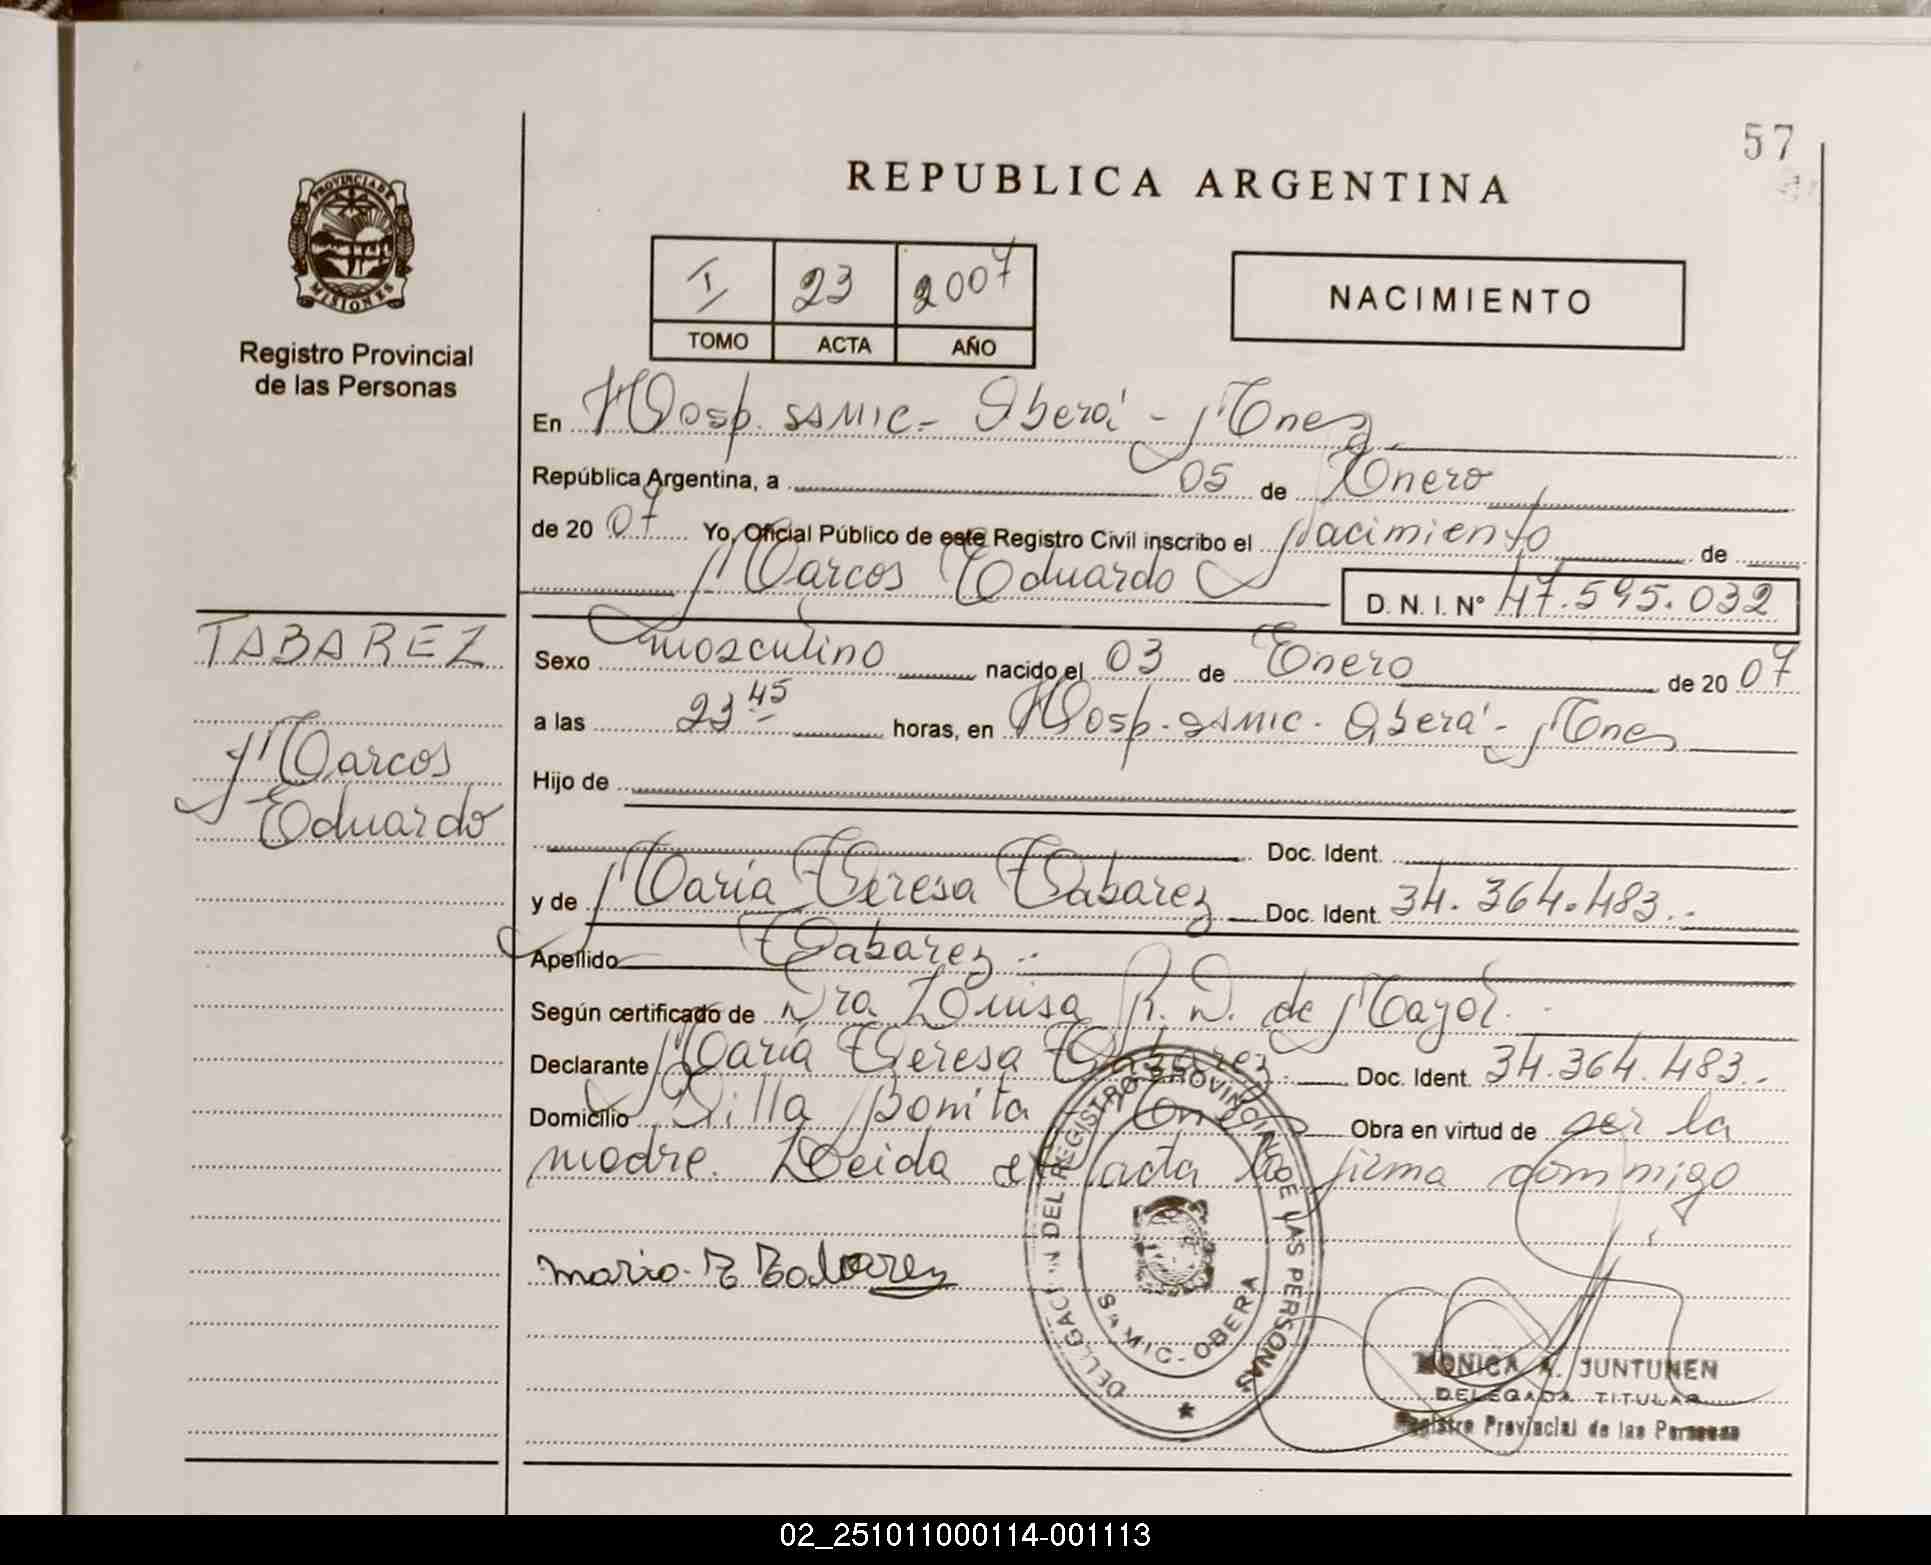 57
REPUBLICA ARGENTINA
PROVINCIA DE
MISIONES
Registro Provincial
de las Personas
I 23 2007
TOMO ACTA AÑO
NACIMIENTO
En Hosp. SAMIC - Oberá - Mnes
República Argentina, a 05 de Enero
de 2007 Yo, Oficial Público de este Registro Civil inscribo el Nacimiento de
Marcos Eduardo D. N. I. N° 47.595.032
TABAREZ
Marcos
Eduardo
Sexo masculino nacido el 03 de Enero de 2007
a las 23 45 horas, en Hosp. SAMIC - Oberá - Mnes
Hijo de
Doc. Ident.
y de María Teresa Tabarez Doc. Ident. 34.364.483.-
Apellido Tabarez.-
Según certificado de Dra Luisa R. D. de Mayol.
Declarante María Teresa Tabarez Doc. Ident. 34.364.483.-
Domicilio Villa Bonita - Mnes Obra en virtud de ser la
madre. Leida el acta la firma conmigo
Maria T Tabarez
DELEGACION DEL REGISTRO PROVINCIAL DE LAS PERSONAS
SAMIC - OBERA
MONICA A. JUNTUNEN
DELEGADA TITULAR
Registro Provincial de las Personas
02_251011000114-001113